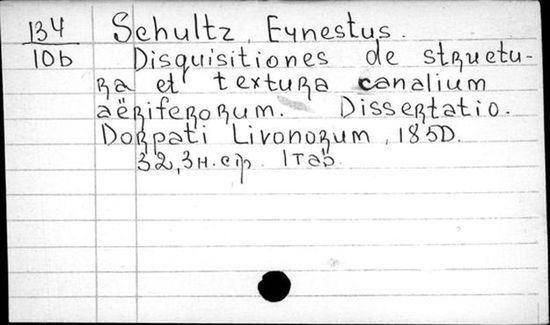 134 Schultz, Eynestus.
10b Disquisitiones de structu-
ra et textura canalium
aëriferorum. Dissertatio.
Dorpati Livonorum, 1850.
32, 3н.стр. 1таб.